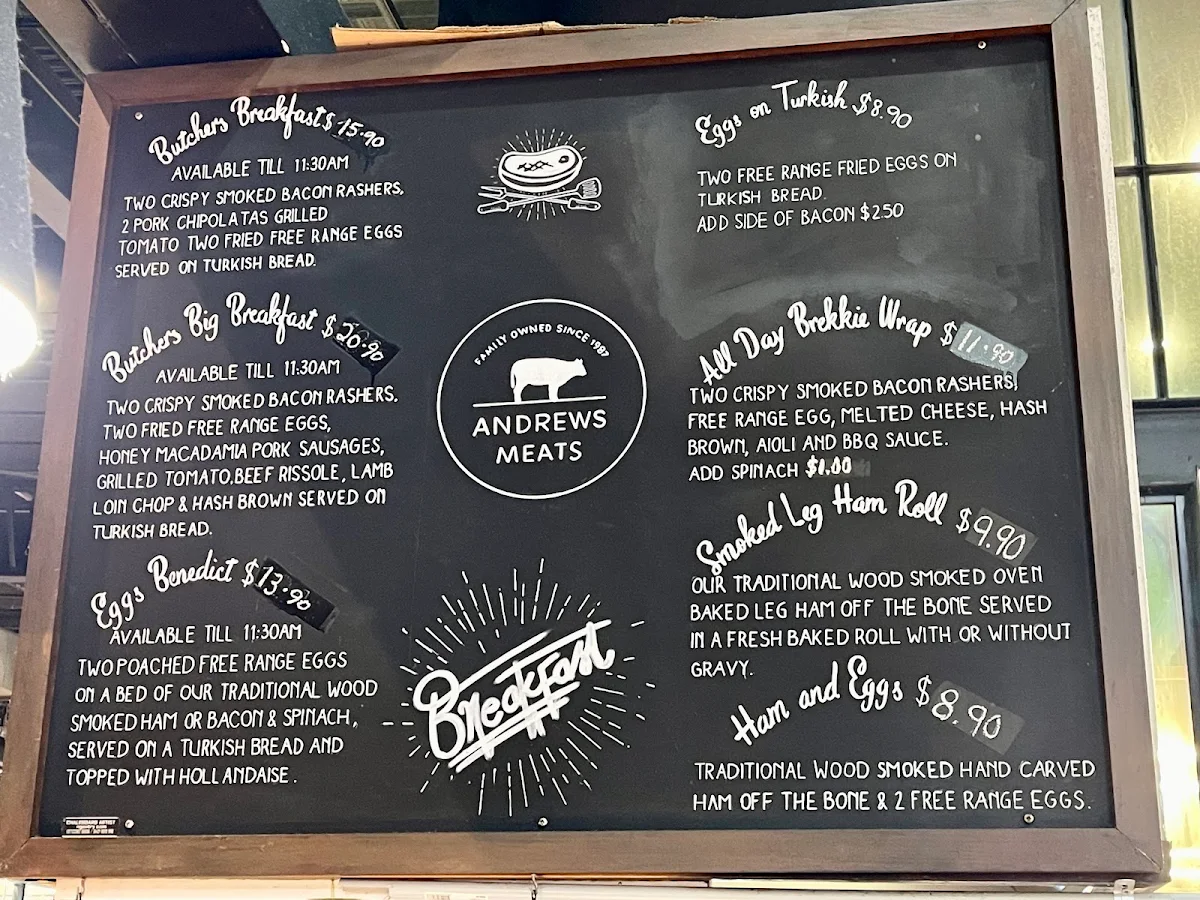 Butchers Breakfast $15.90
AVAILABLE TILL 11:30AM
TWO CRISPY SMOKED BACON RASHERS,
2 PORK CHIPOLATAS GRILLED
TOMATO TWO FRIED FREE RANGE EGGS
SERVED ON TURKISH BREAD.
Butchers Big Breakfast $20.90
AVAILABLE TILL 11:30AM
TWO CRISPY SMOKED BACON RASHERS.
TWO FRIED FREE RANGE EGGS,
HONEY MACADAMIA PORK SAUSAGES,
GRILLED TOMATO, BEEF RISSOLE, LAMB
LOIN CHOP & HASH BROWN SERVED ON
TURKISH BREAD.
Eggs Benedict $13.90
AVAILABLE TILL 11:30AM
TWO POACHED FREE RANGE EGGS
ON A BED OF OUR TRADITIONAL WOOD
SMOKED HAM OR BACON & SPINACH,
SERVED ON A TURKISH BREAD AND
TOPPED WITH HOLLANDAISE.
CHALKBOARD ARTIST
FAMILY OWNED SINCE 1987
ANDREWS
MEATS
Breakfast
Eggs on Turkish $8.90
TWO FREE RANGE FRIED EGGS ON
TURKISH BREAD.
ADD SIDE OF BACON $2.50
All Day Brekkie Wrap $11.90
TWO CRISPY SMOKED BACON RASHERS,
FREE RANGE EGG, MELTED CHEESE, HASH
BROWN, AIOLI AND BBQ SAUCE.
ADD SPINACH $1.00
Smoked Leg Ham Roll $9.90
OUR TRADITIONAL WOOD SMOKED OVEN
BAKED LEG HAM OFF THE BONE SERVED
IN A FRESH BAKED ROLL WITH OR WITHOUT
GRAVY.
Ham and Eggs $8.90
TRADITIONAL WOOD SMOKED HAND CARVED
HAM OFF THE BONE & 2 FREE RANGE EGGS.